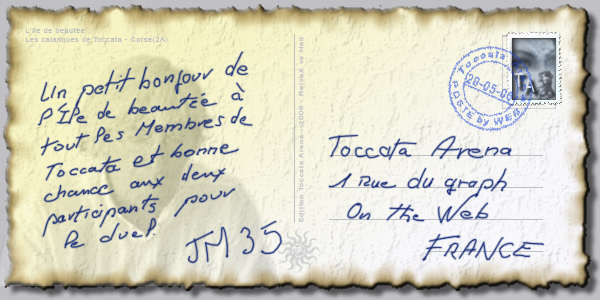 L'île de beautée
Les calanques de Toccata - Corse(2A)
Un petit bonjour de
l'Île de beautée à
tout les Membres de
Toccata et bonne
chance aux deux
participants pour
le duel.
JM35
Edition Toccata Arena
Toccata
20-05-06
POSTE by WEB
TA
Toccata Arena
1 Rue du graph
On the Web
FRANCE